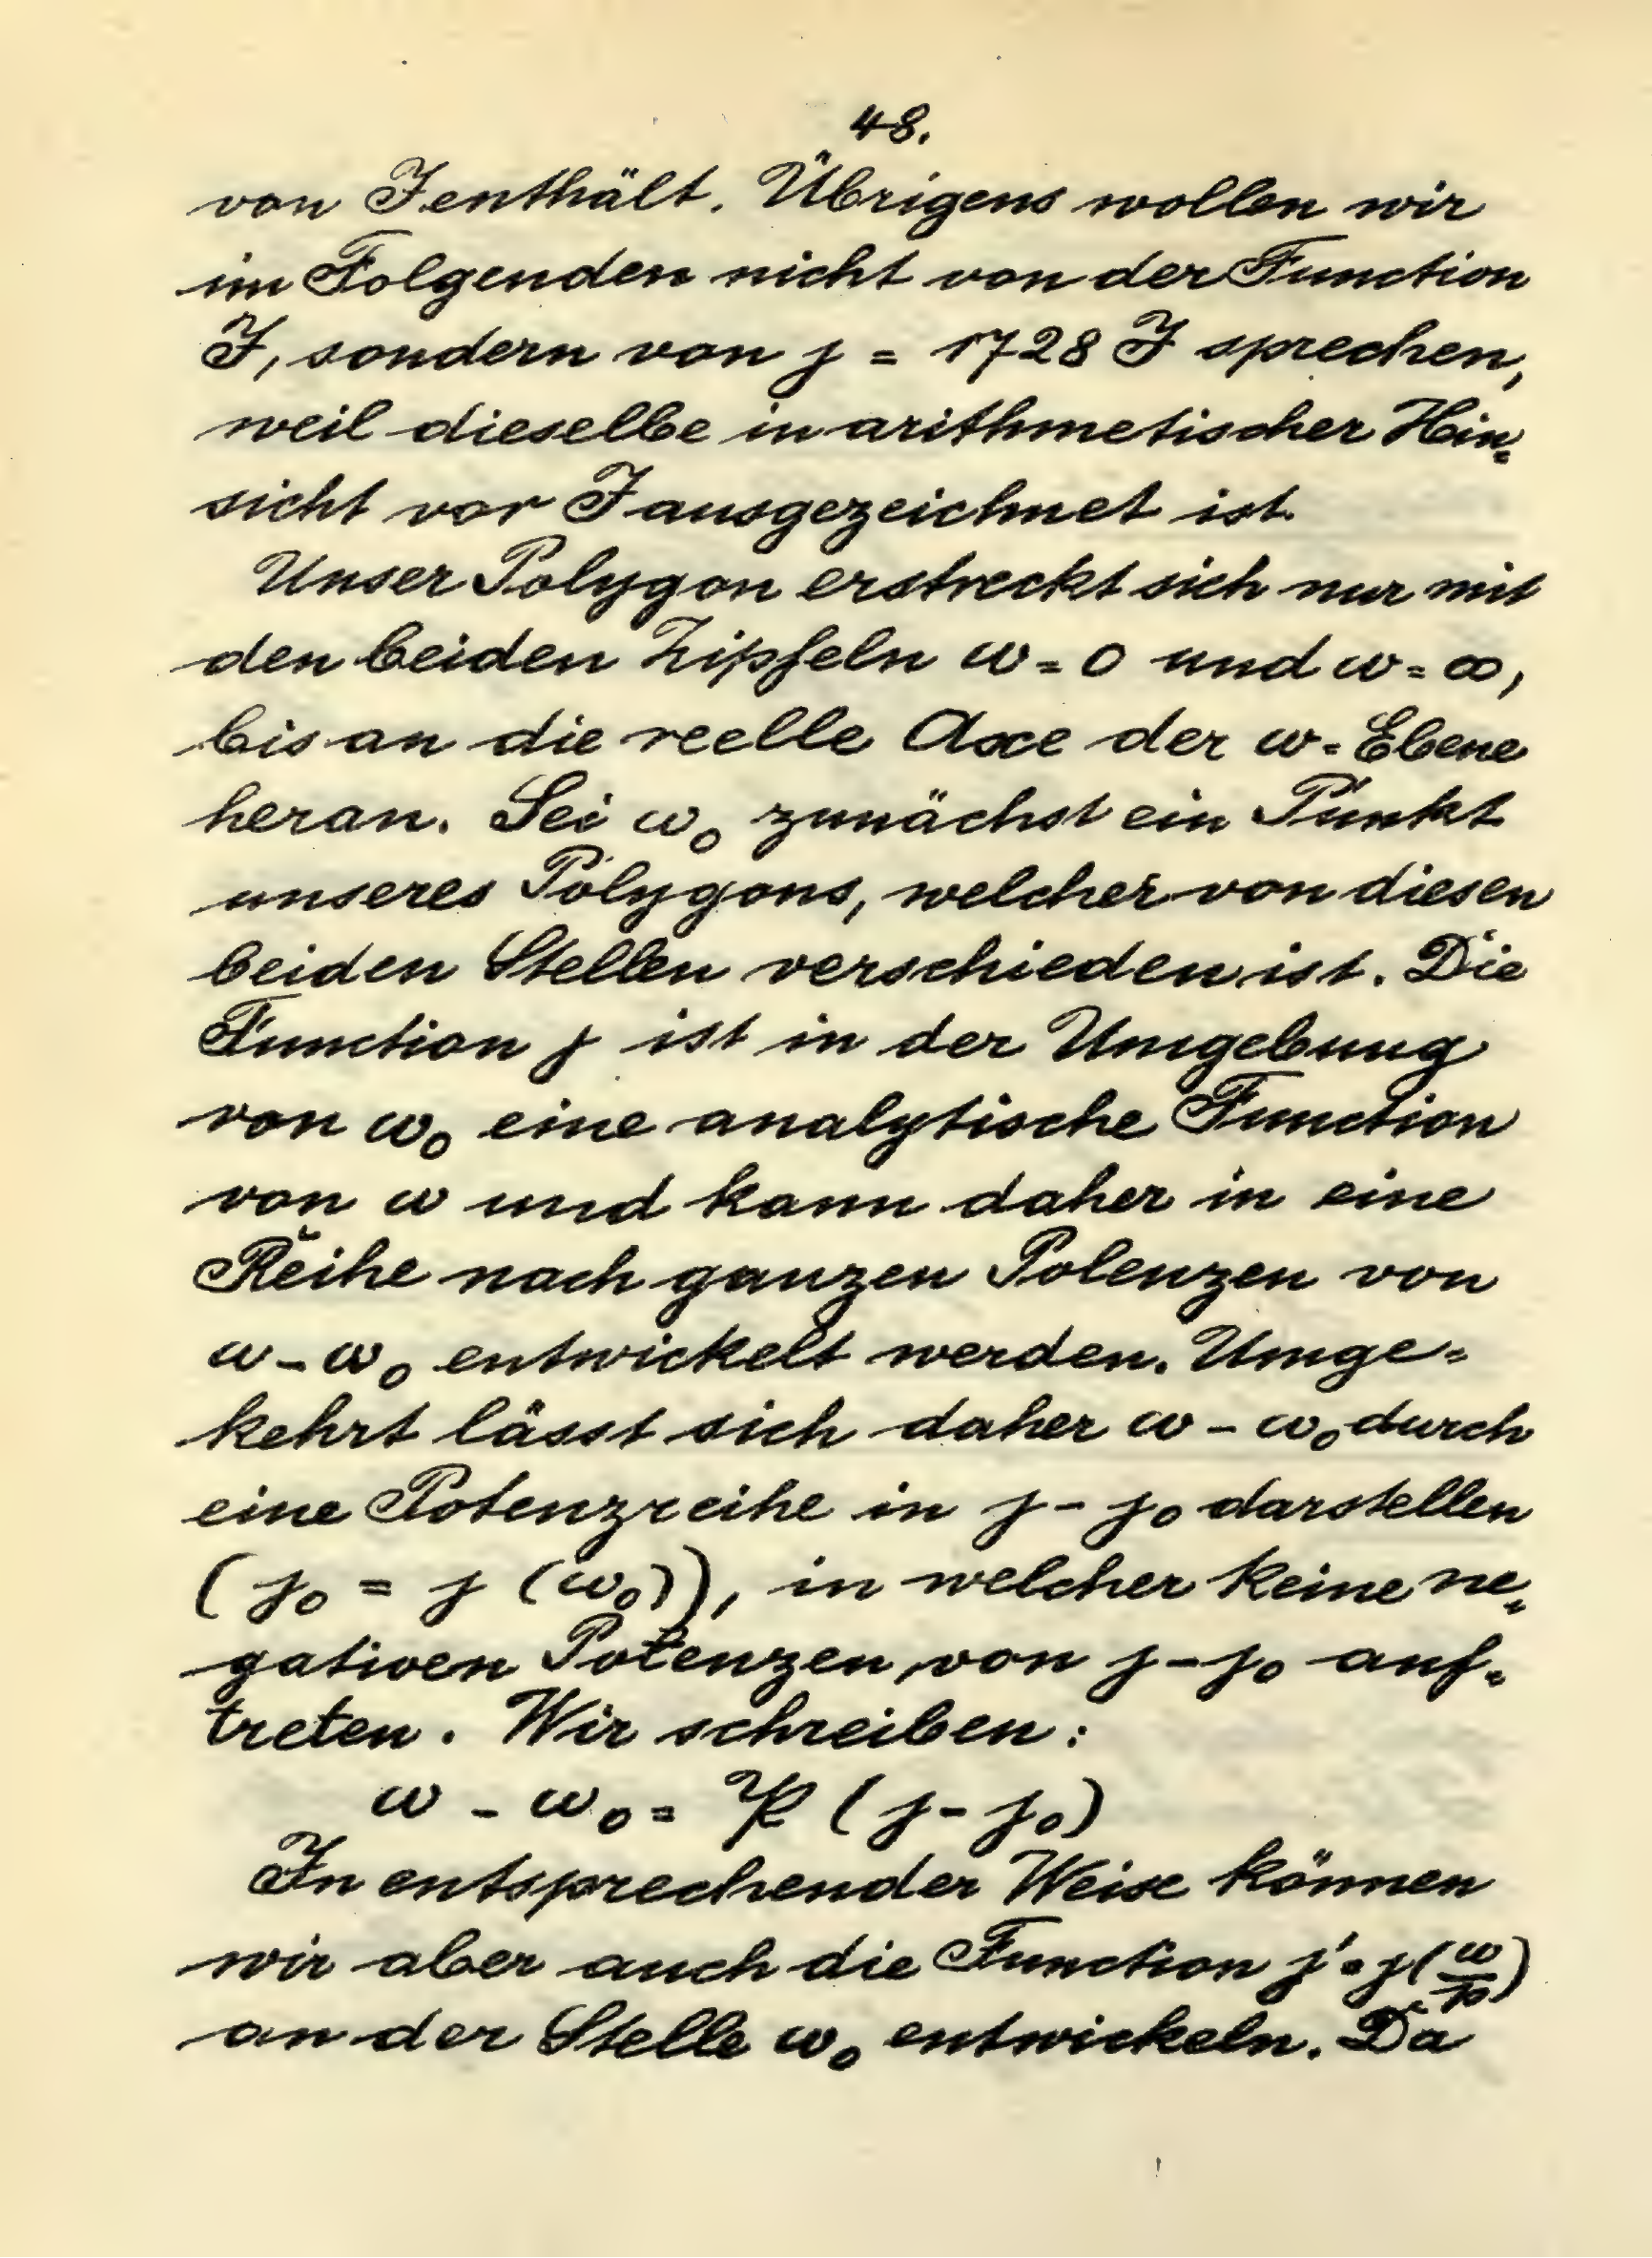 48.
von J enthält. Übrigens wollen wir
im Folgenden nicht von der Function
J, sondern von j = 1728 J sprechen,
weil dieselbe in arithmetischer Hin=
sicht vor J ausgezeichnet ist.
Unser Polygon erstreckt sich nur mit
den beiden Zipfeln ω = 0 und ω = ∞,
bis an die reelle Axe der ω-Ebene
heran. Sei ω₀ zunächst ein Punkt
unseres Polygons, welcher von diesen
beiden Stellen verschieden ist. Die
Function j ist in der Umgebung
von ω₀ eine analytische Function
von ω und kann daher in eine
Reihe nach ganzen Potenzen von
ω - ω₀ entwickelt werden. Umge=
kehrt lässt sich daher ω - ω₀ durch
eine Potenzreihe in j - j₀ darstellen
(j₀ = j (ω₀)), in welcher keine ne=
gativen Potenzen von j - j₀ auf=
treten. Wir schreiben:
ω - ω₀ = 𝔓 (j - j₀)
In entsprechender Weise können
wir aber auch die Function j' = j(ω/p)
an der Stelle ω₀ entwickeln. Da